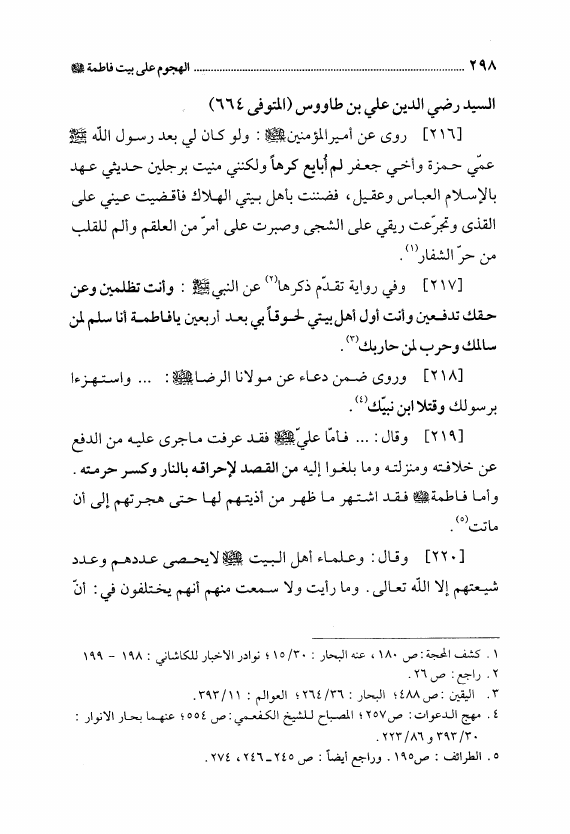 ٢٩٨ ........................................ الهجوم على بيت فاطمة ﷺ
السيد رضي الدين علي بن طاووس (المتوفى ٦٦٤)
[٢١٦] روى عن أميرالمؤمنين ﷺ : ولو كان لي بعد رسول الله ﷺ
عمّي حمزة وأخي جعفر لم أبايع كرهاً ولكنني منيت برجلين حديثي عهد
بالإسلام العباس وعقيل، فضننت بأهل بيتي الهلاك فأقضيت عيني على
القذى وتجرّعت ريقي على الشجى وصبرت على أمرّ من العلقم وألم للقلب
من حرّ الشفار(١).
[٢١٧] وفي رواية تقدّم ذكرها(٢) عن النبي ﷺ : وأنت تظلمين وعن
حقك تدفعين وأنت أول أهل بيتي لحوقاً بي بعد أربعين يافاطمة أنا سلم لمن
سالمك وحرب لمن حاربك(٣).
[٢١٨] وروى ضمن دعاء عن مولانا الرضا ﷺ : ... واستهزءا
برسولك وقتلا ابن نبيّك(٤).
[٢١٩] وقال: ... فأمّا عليّ ﷺ فقد عرفت ماجرى عليه من الدفع
عن خلافته ومنزلته وما بلغوا إليه من القصد لإحراقه بالنار وكسر حرمته .
وأما فاطمة ﷺ فقد اشتهر ما ظهر من أذيتهم لها حتى هجرتهم إلى أن
ماتت(٥).
[٢٢٠] وقال: وعلماء أهل البيت ﷺ لايحصى عددهم وعدد
شيعتهم إلا الله تعالى. وما رأيت ولا سمعت منهم أنهم يختلفون في: أنّ
١. كشف المحجة: ص ١٨٠، عنه البحار : ١٥/٣٠؛ نوادر الاخبار للكاشاني : ١٩٨ - ١٩٩
٢. راجع: ص ٢٦.
٣. اليقين :ص٤٨٨؛ البحار : ٢٦٤/٣٦؛ العوالم : ٣٩٣/١١.
٤. مهج الدعوات: ص٢٥٧؛ المصباح للشيخ الكفعمي:ص ٥٥٤؛ عنهما بحار الانوار :
٣٩٣/٣٠ و ٢٢٣/٨٦.
٥. الطرائف : ص١٩٥. وراجع أيضاً : ص ٢٤٥ـ٢٤٦، ٢٧٤.